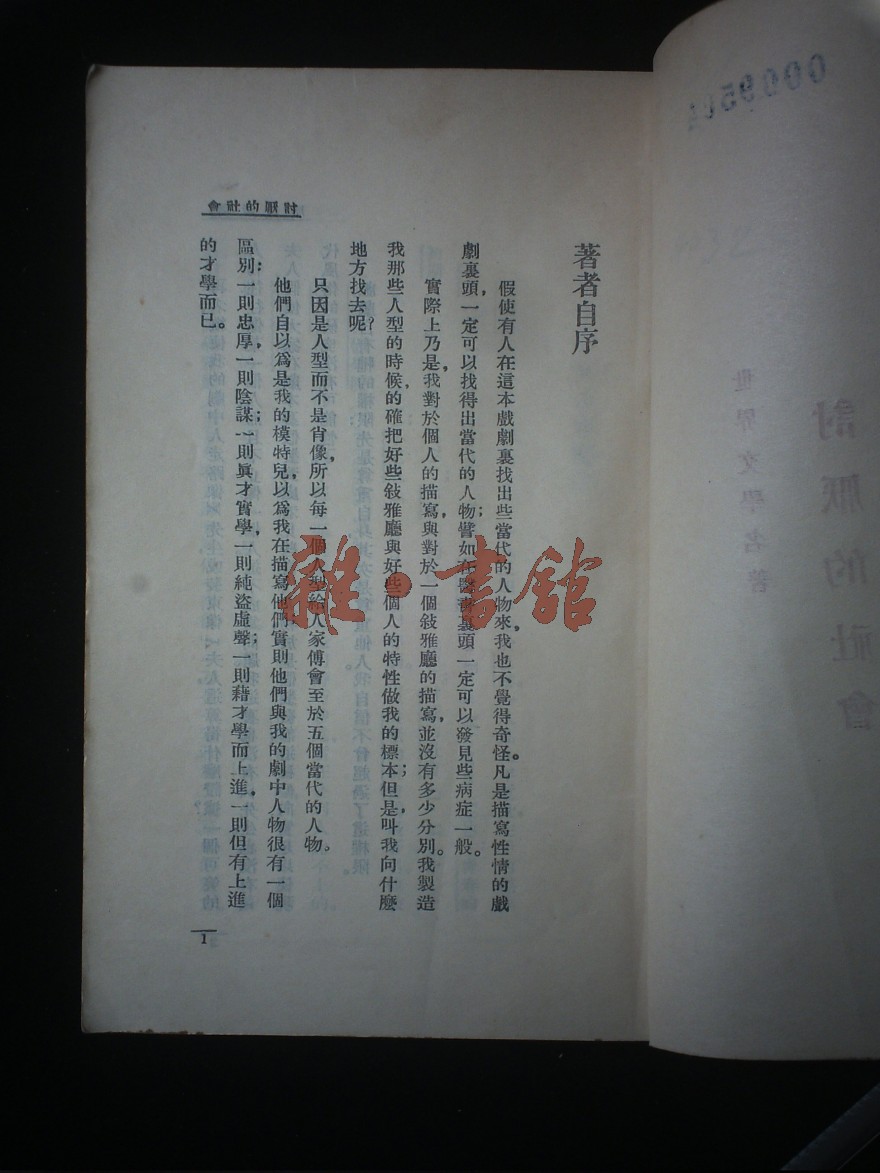 著者自序
假使有人在這本戲劇裏找出些當代的人物來，我也不覺得奇怪。凡是描寫性情的戲
劇裏頭，一定可以找得出當代的人物；譬如在醫書裏頭一定可以發見些病症一般。
實際上乃是，我對於個人的描寫，與對於一個敍雅廳的描寫，並沒有多少分別。我製造
我那些人型的時候，的確把好些敍雅廳與好些個人的特性做我的標本；但是，叫我向什麼
地方找去呢？
只因是人型而不是肖像，所以每一個人型給人家傅會至於五個當代的人物。
他們自以爲是我的模特兒，以爲我在描寫他們；實則他們與我的劇中人物很有一個
區別：一則忠厚，一則陰謀；一則眞才實學，一則純盜虛聲；一則藉才學而上進，一則但有上進
的才學而已。
討厭的社會
1
雜·書館
世界文學名著
討厭的社會